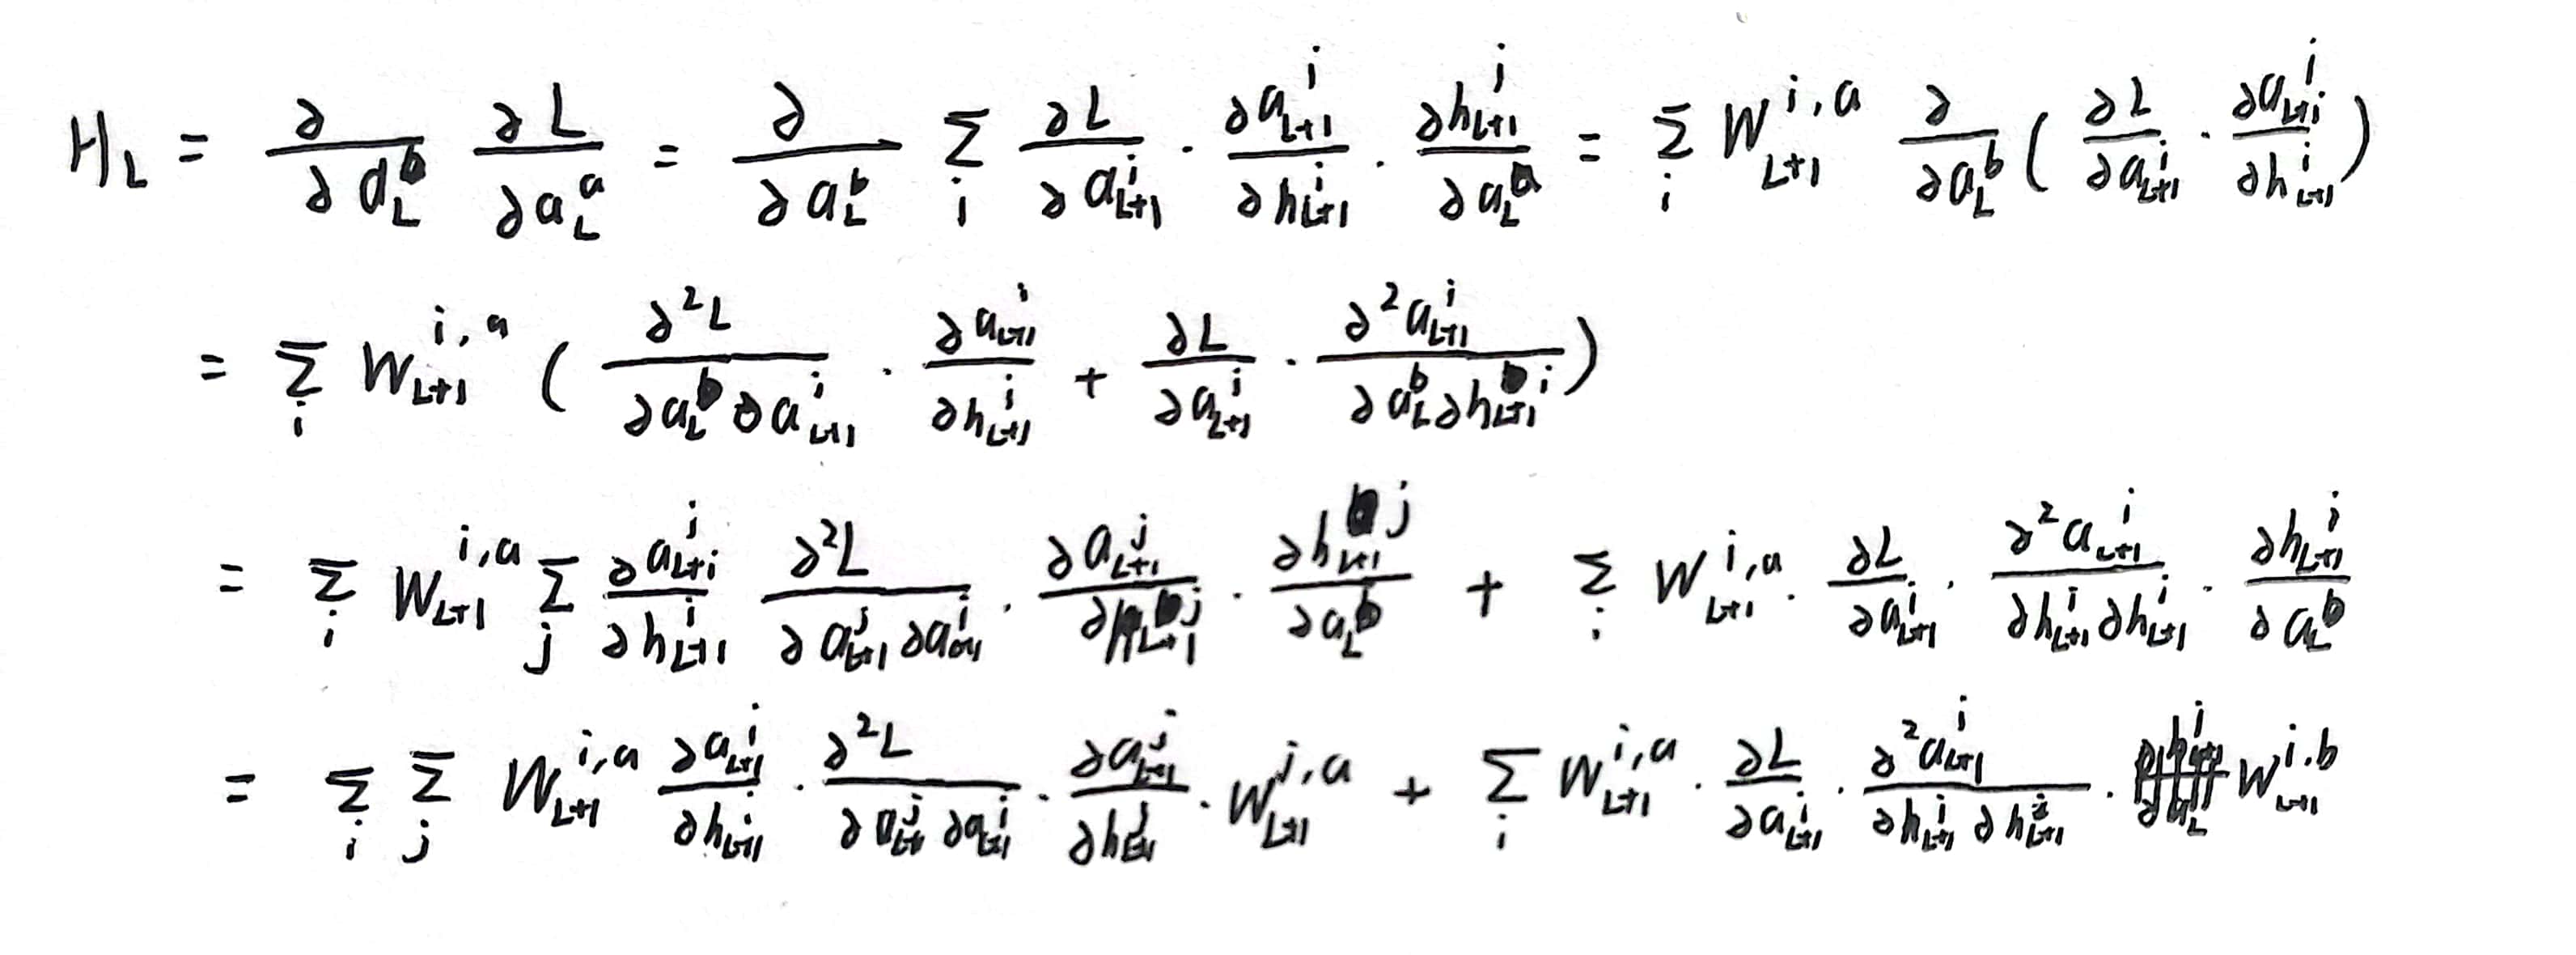 H_L = ∂/∂a_L^b ∂L/∂a_L^a = ∂/∂a_L^b Σ_i ∂L/∂a_{L+1}^i · ∂a_{L+1}^i/∂h_{L+1}^i · ∂h_{L+1}^i/∂a_L^a = Σ_i W_{L+1}^{i,a} ∂/∂a_L^b ( ∂L/∂a_{L+1}^i · ∂a_{L+1}^i/∂h_{L+1}^i )
= Σ_i W_{L+1}^{i,a} ( ∂²L/∂a_L^b ∂a_{L+1}^i · ∂a_{L+1}^i/∂h_{L+1}^i + ∂L/∂a_{L+1}^i · ∂²a_{L+1}^i/∂a_L^b ∂h_{L+1}^i )
= Σ_i W_{L+1}^{i,a} Σ_j ∂a_{L+1}^i/∂h_{L+1}^i ∂²L/∂a_{L+1}^j ∂a_{L+1}^i · ∂a_{L+1}^j/∂h_{L+1}^j · ∂h_{L+1}^j/∂a_L^b + Σ_i W_{L+1}^{i,a} · ∂L/∂a_{L+1}^i · ∂²a_{L+1}^i/∂h_{L+1}^i ∂h_{L+1}^i · ∂h_{L+1}^i/∂a_L^b
= Σ_i Σ_j W_{L+1}^{i,a} ∂a_{L+1}^i/∂h_{L+1}^i · ∂²L/∂a_{L+1}^j ∂a_{L+1}^i · ∂a_{L+1}^j/∂h_{L+1}^j · W_{L+1}^{j,a} + Σ_i W_{L+1}^{i,a} · ∂L/∂a_{L+1}^i · ∂²a_{L+1}^i/∂h_{L+1}^i ∂h_{L+1}^i · W_{L+1}^{i,b}